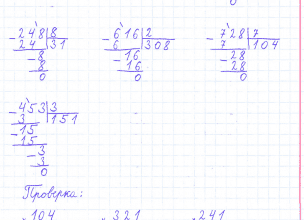 248 8 616 2 728 7
24 31 6 308 7 104
8 16 28
8 16 28
0 0 0
453 3
3 151
15
15
3
3
0
Проверка:
104 321 241